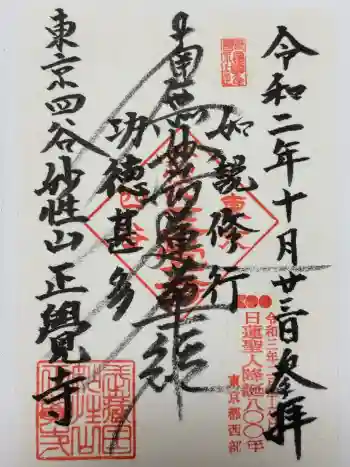 令和二年十月廿三日参拝
如説修行
南無妙法蓮華経
功徳甚多
東京四谷妙性山正覺寺
令和三年二月十
日蓮聖人降誕八〇〇年
東京都西部